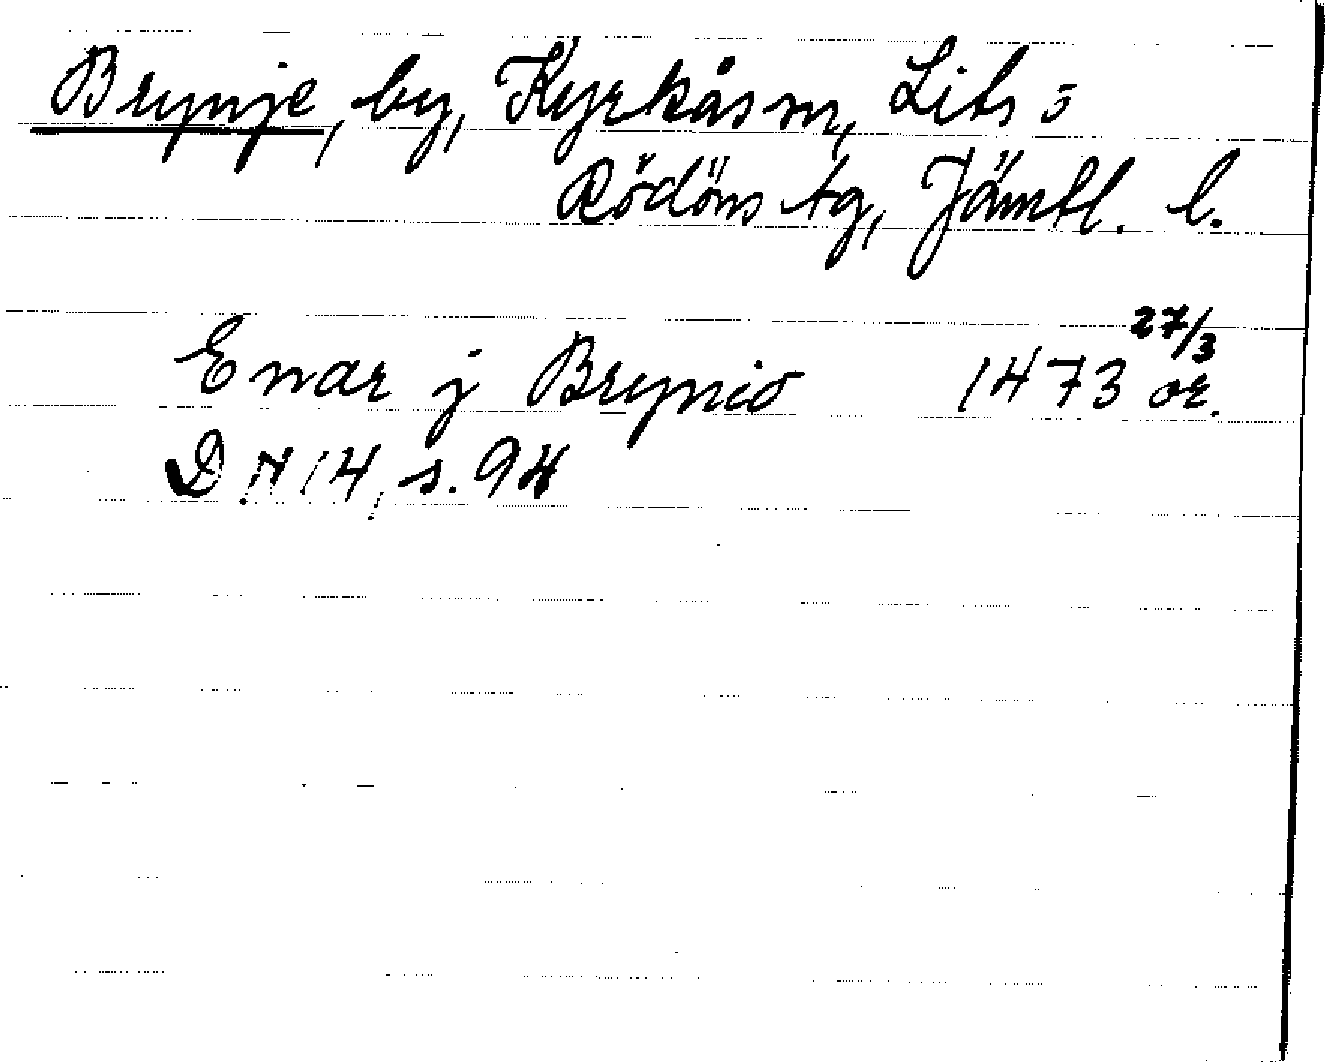 Brynje, by, Kyrkås sn, Lits o
Rödöns tg, Jämtl. l.
Enar j Brynio 1473 27/3 or.
DN 14, s. 94